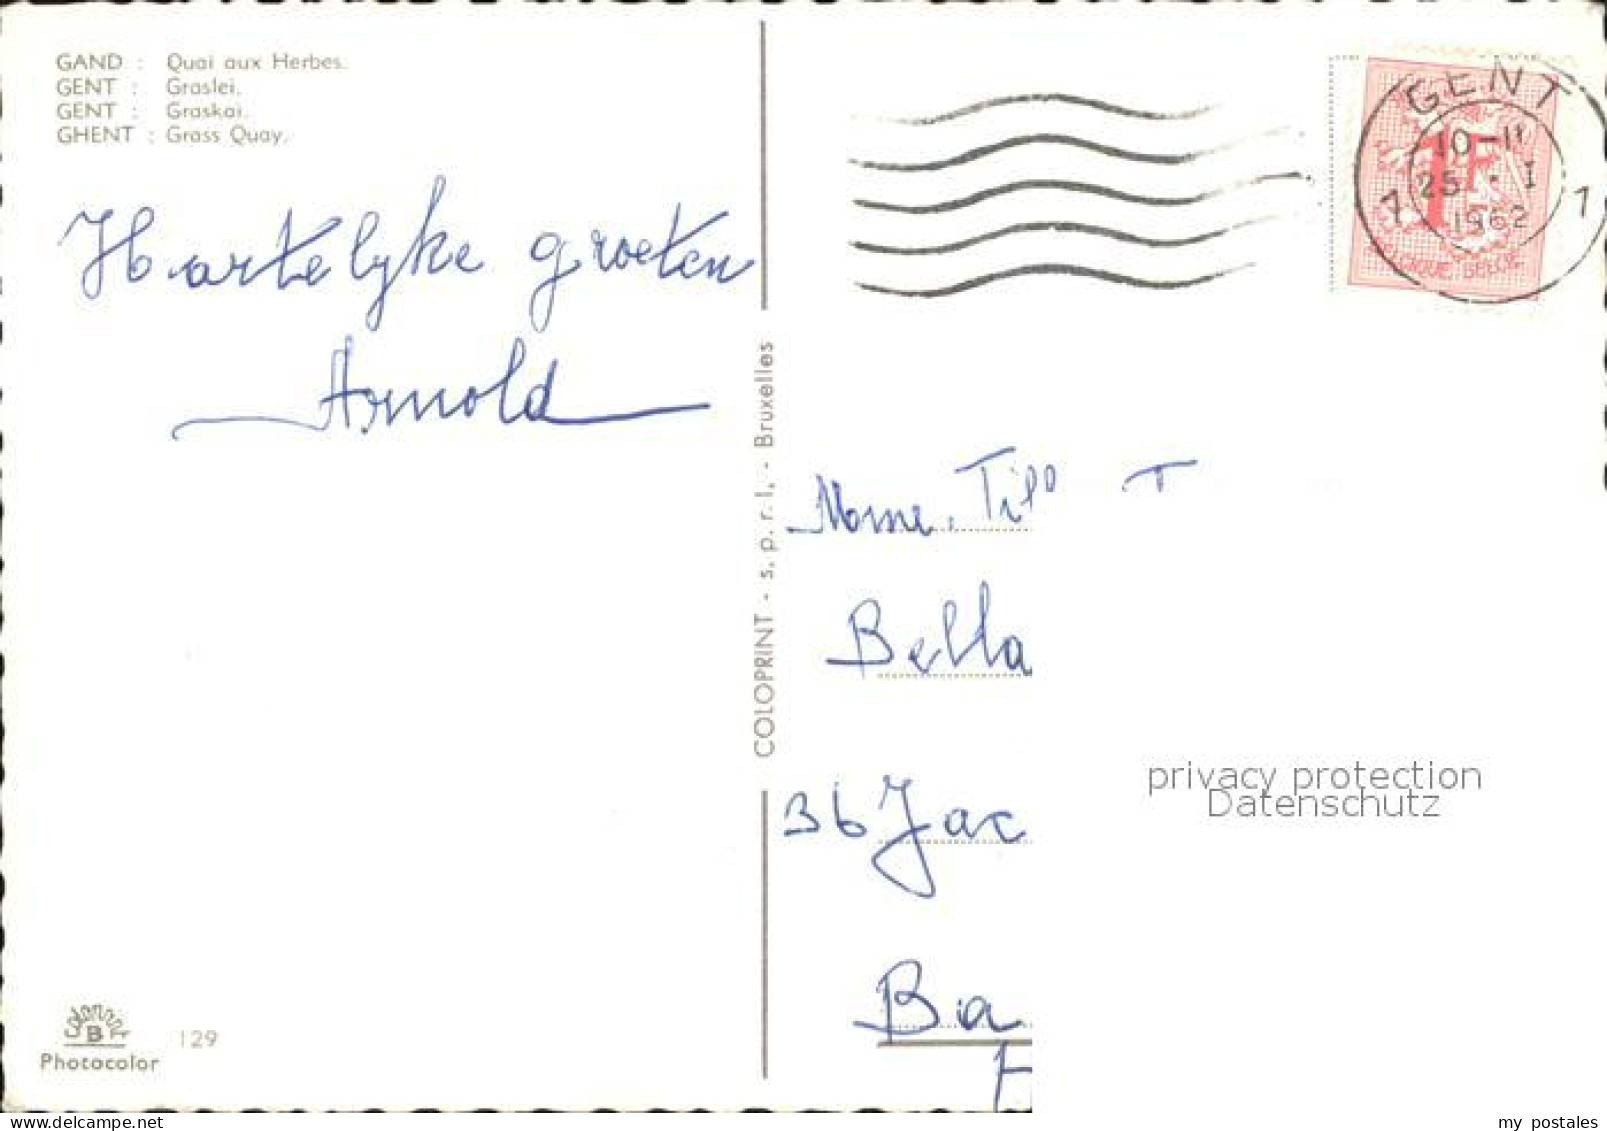 GAND : Quai aux Herbes.
GENT : Graslei.
GENT : Graskai.
GHENT : Grass Quay.
Hartelyke groeten
Arnold
COLOPRINT - s. p. r. l. - Bruxelles
GENT
10-11
25 - I
1962
1 1
1F
BELGIE
Mme. Till
Bella
36 Jac
Ba
privacy protection
Datenschutz
coloprint
B
Photocolor
129
www.ansichtskartenversand.com
my postales